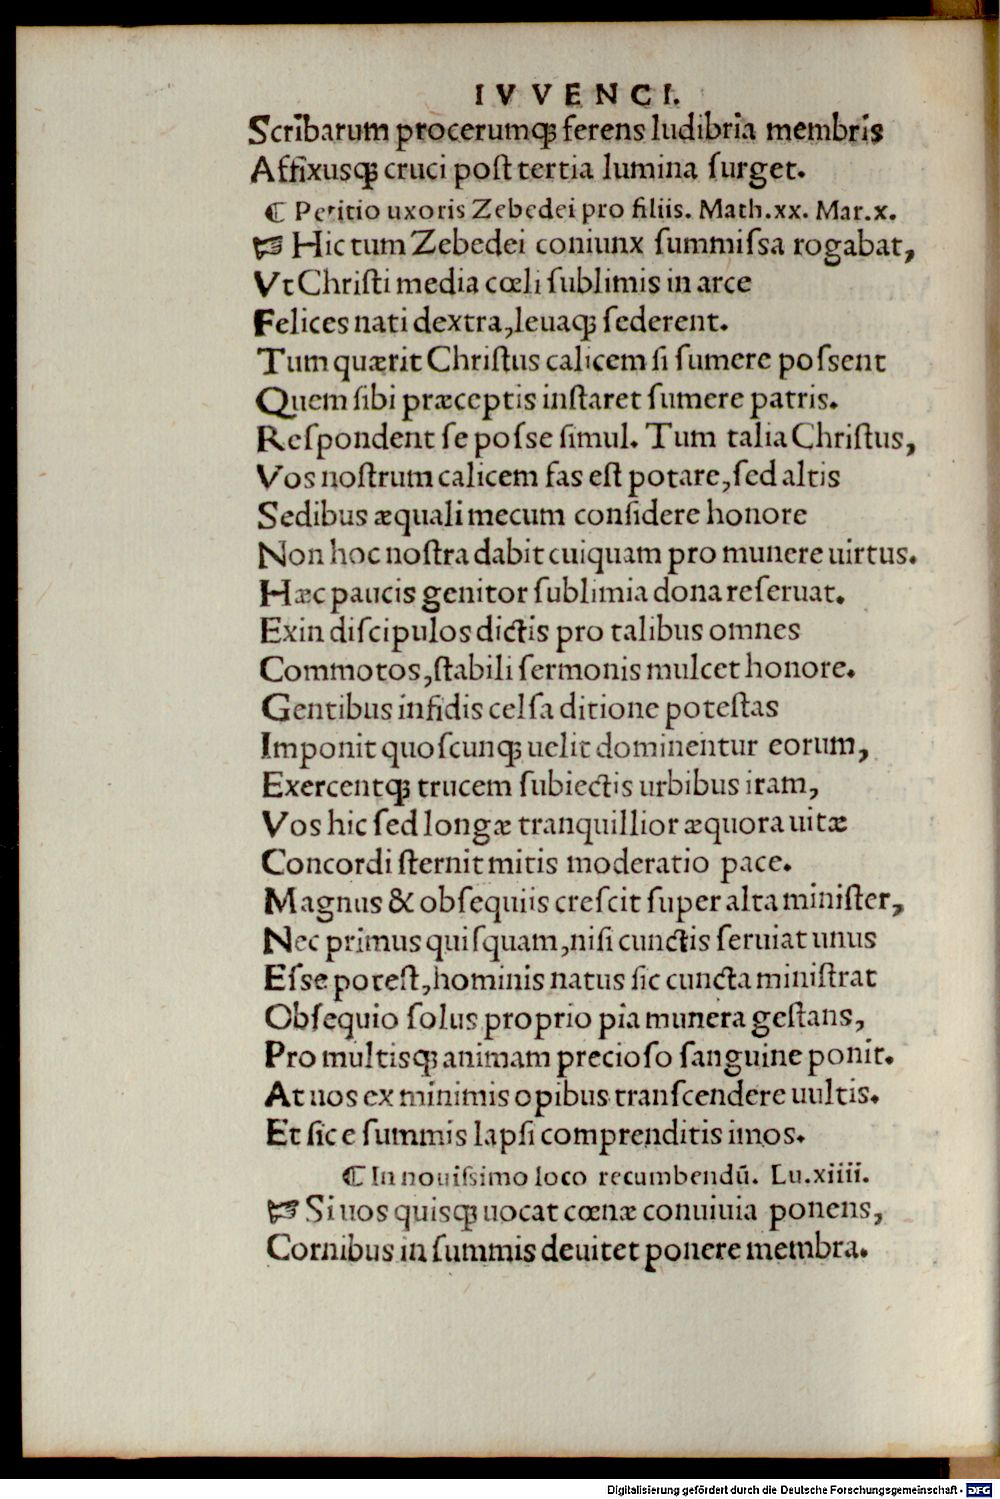 IVVENCI.
Scribarum procerumqꝫ ferens ludibria membris
Affixusqꝫ cruci poſt tertia lumina ſurget.
¶ Petitio uxoris Zebedei pro filiis. Math.xx. Mar.x.
☞ Hic tum Zebedei coniunx ſummiſsa rogabat,
Vt Chriſti media cœli ſublimis in arce
Felices nati dextra, leuaqꝫ ſederent.
Tum quærit Chriſtus calicem ſi ſumere poſsent
Quem ſibi præceptis inſtaret ſumere patris.
Reſpondent ſe poſse ſimul. Tum talia Chriſtus,
Vos noſtrum calicem fas eſt potare, ſed altis
Sedibus æquali mecum conſidere honore
Non hoc noſtra dabit cuiquam pro munere uirtus.
Hæc paucis genitor ſublimia dona reſeruat.
Exin diſcipulos dictis pro talibus omnes
Commotos, ſtabili ſermonis mulcet honore.
Gentibus infidis celſa ditione poteſtas
Imponit quoſcunqꝫ uelit dominentur eorum,
Exercentqꝫ trucem ſubiectis urbibus iram,
Vos hic ſed longæ tranquillior æquora uitæ
Concordi ſternit mitis moderatio pace.
Magnus & obſequiis creſcit ſuper alta miniſter,
Nec primus quiſquam, niſi cunctis ſeruiat unus
Eſse poteſt, hominis natus ſic cuncta miniſtrat
Obſequio ſolus proprio pia munera geſtans,
Pro multisqꝫ animam precioſo ſanguine ponit.
At uos ex minimis opibus tranſcendere uultis.
Et ſic e ſummis lapſi comprenditis imos.
¶ In nouiſsimo loco recumbendū. Lu.xiiii.
☞ Si uos quisqꝫ uocat cœnæ conuiuia ponens,
Cornibus in ſummis deuitet ponere membra.
Digitalisierung gefördert durch die Deutsche Forschungsgemeinschaft - DFG